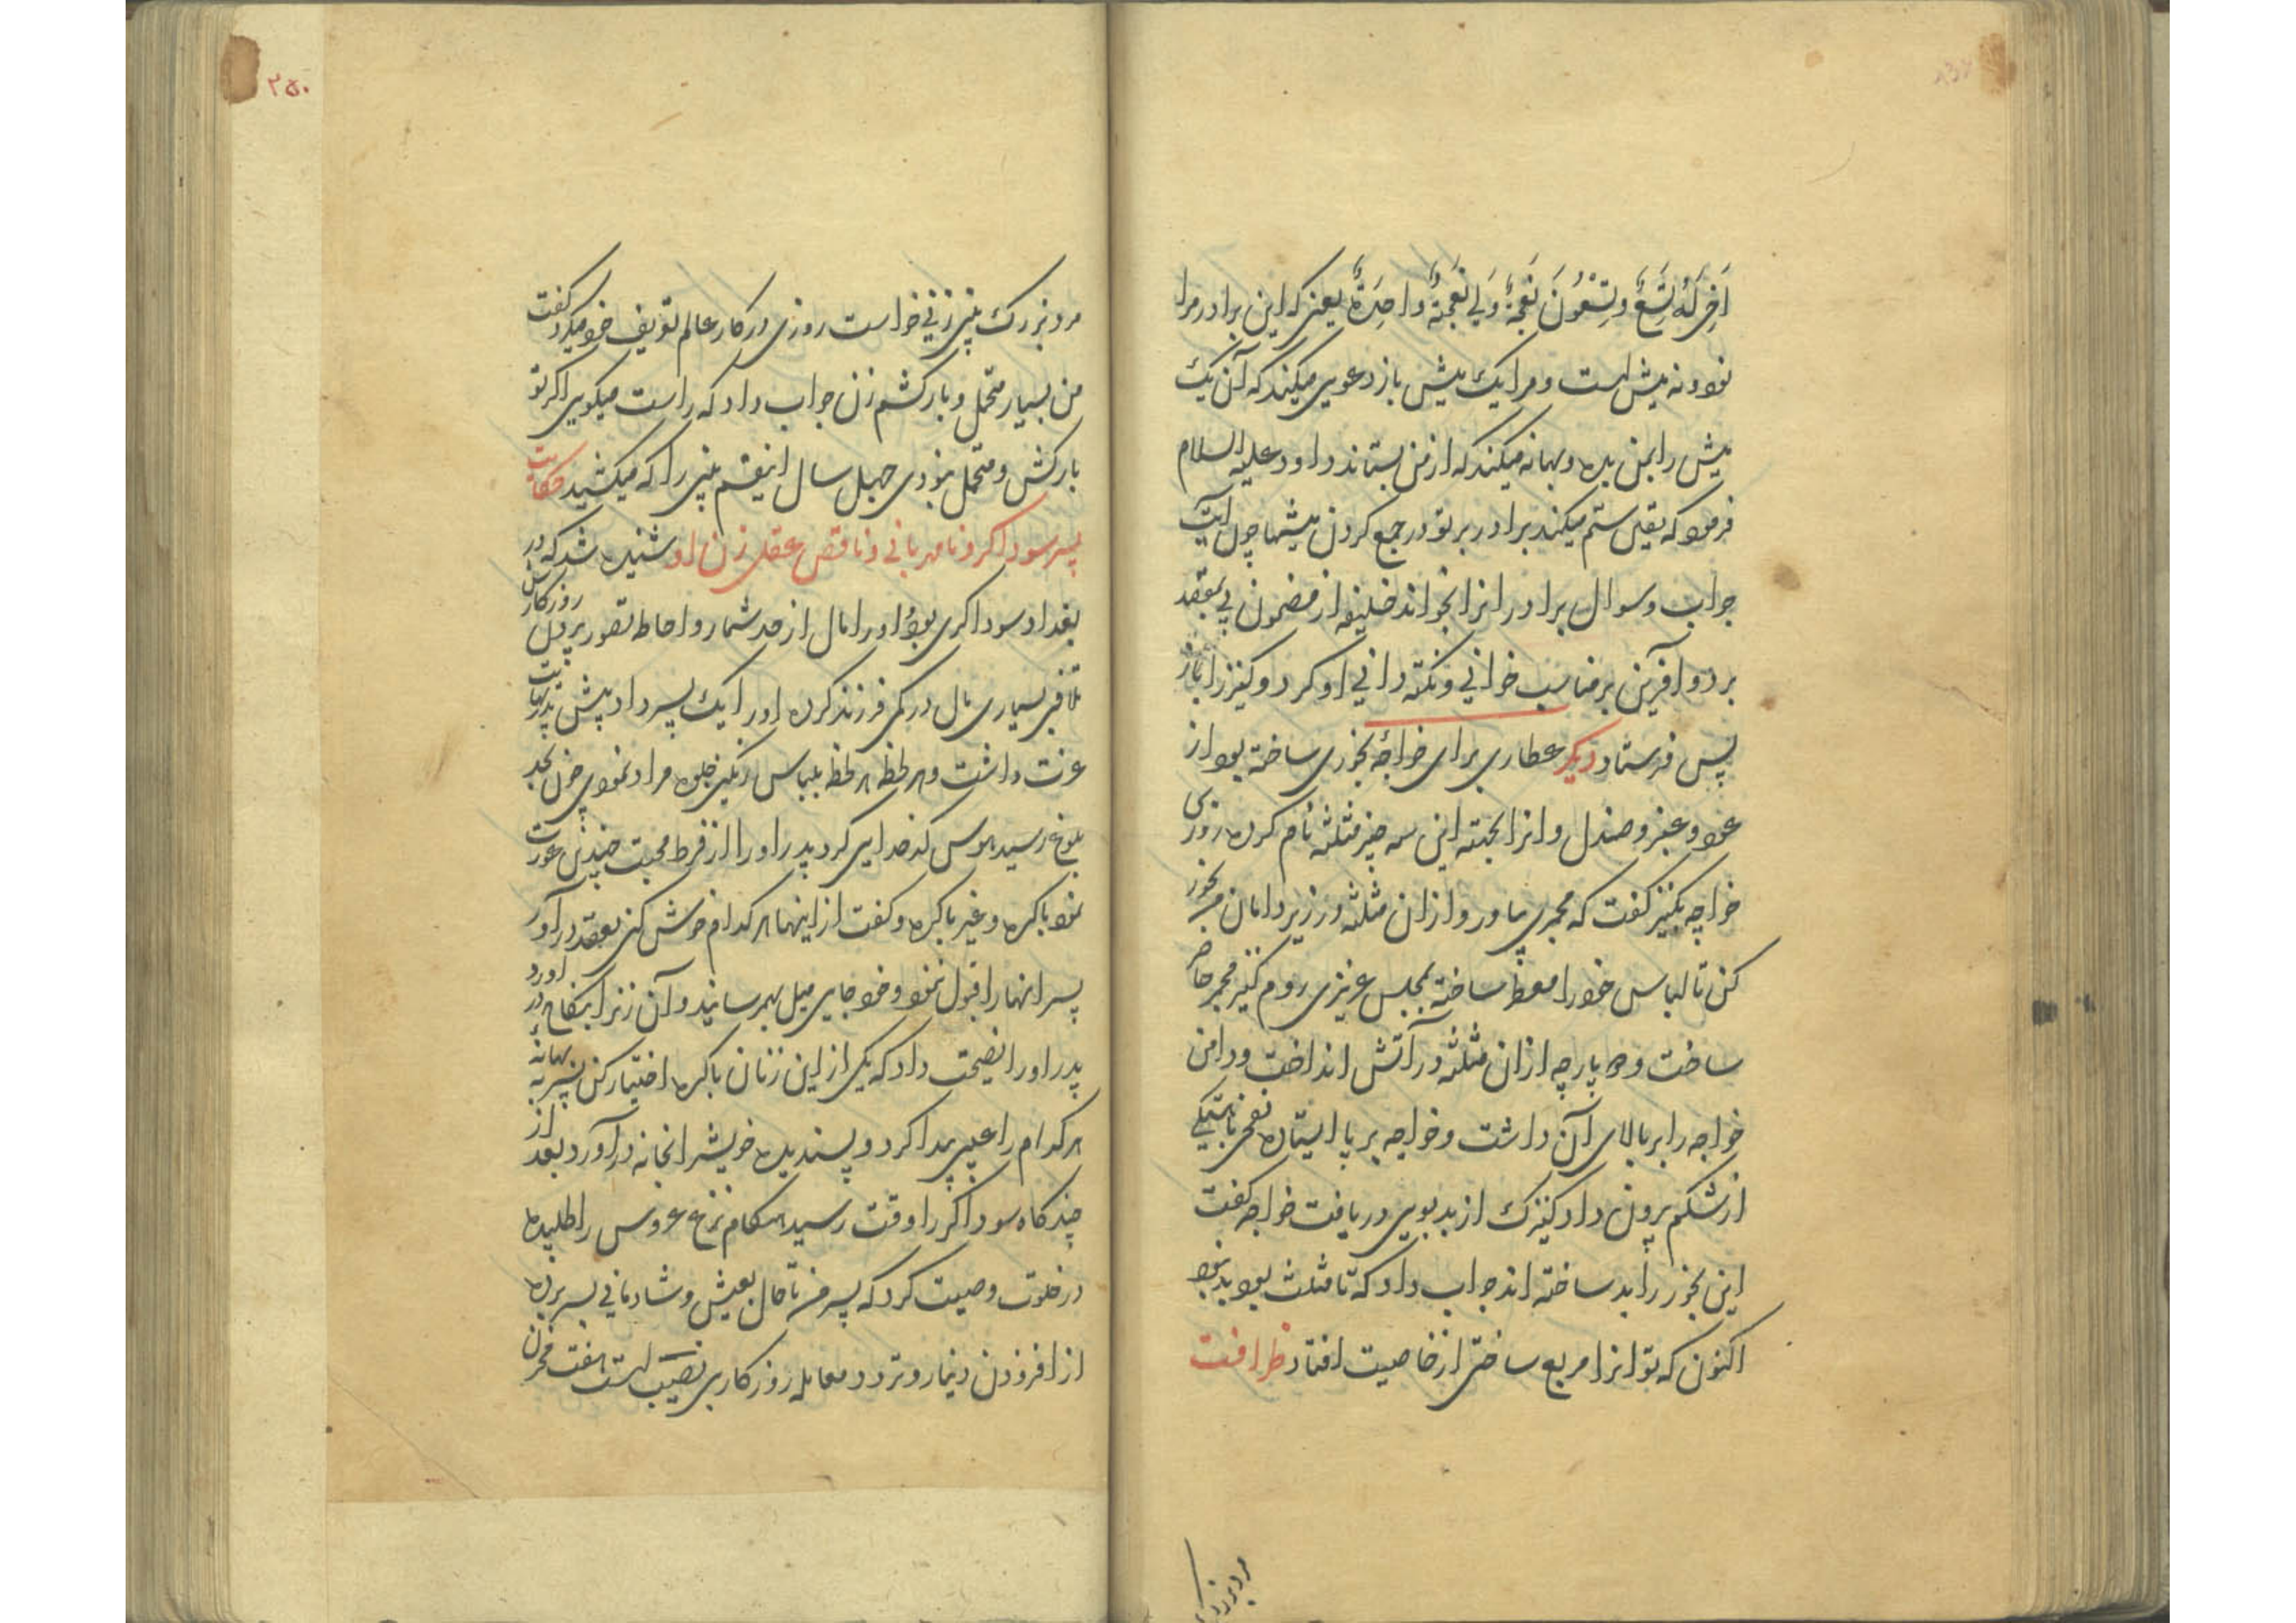 اَخِی لَهُ تِسْعٌ وَتِسْعُونَ نَعْجَةً وَلِی نَعْجَةٌ واحِدَةٌ یعنی که این برادر مرا
نود و نه میش است و مرا یک میش باز دعوی میکند که آن یک
میش را بمن بده و بهانه میکند که از من بستاند داود علیه السلام
فرمود که یقین ستم میکند برادر بر تو در جمع کردن میشها چون آیت
جواب و سوال برادرانرا بخواند خلیفه از مضمون پی بمقصد
برد و آفرین بر مناسب خوانی و نکته دانی او کرد و کنیز را باز
پس فرستاد دیگر عطاری برای خواجه بخوری ساخته بود از
عود و عنبر و صندل و انرا بجهته این سه چیز مثلثه نام کرده روزی
خواجه بکنیز گفت که مجمری بیاور و ازان مثلثه در زیر دامان من بخور
کن تا لباس خود را معطر ساخته بمجلس عزیزی روم کنیز مجمر حاضر
ساخت و پارچه ازان مثلثه در آتش انداخت و دامن
خواجه را بر بالای آن داشت و خواجه بر پا ایستاده نفخی باستکی
از شکم بیرون داد کنیزک از بدبویی دریافت خواجه گفت
این بخور را بد ساخته اند جواب داد که تا مثلث بود بد نبود
اکنون که تو انرا مربع ساختی از خاصیت افتاد ظرافت
مرد بزرگ
۲۵۰
مرد بزرک بینی زنی خواست روزی در کار عالم تعریف خود میکرد گفت
من بسیار متحمل و بارکشم زن جواب داد که راست میکویی اکر تو
بارکش و متحمل نبودی چهل سال اینقسم بینی را که میکشید حکایت
پسر سوداکر و نامهربانی و ناقص عقلی زن او شنیده شد که در
بغداد سوداکری بود او را مال از حد شمار و احاطه تصور بیرون روزکارش
تلافی بسیاری مال در کمی فرزند کرده او را یک پسر داد پیش پدر نهایت
عزت داشت و هر لحظه هر لحظه بلباس رنکین جلوه مراد نمودی چون بحد
بلوغ رسید هوس کدخدایی کرد پدر او را از فرط محبت چندین عورت
نمود باکره و غیر باکره و گفت از اینها هر کدام خوش کنی بعقد در آور
پسر انها را قبول ننمود و خود جایی میل بهم رسانید و آن زنرا بنکاح در آورد
پدر او را نصیحت داد که یکی از این زنان باکره اختیار کن پسر به بهانه
هر کدام را عیبی پیدا کرد و پسندیده خویشرا بخانه در آورد بعد از
چند کاه سوداکر را وقت رسید هنکام نزع عروس را طلبیده
در خلوت وصیت کرد که پسر من تا حال بعیش و شادمانی بسر برده
از افزودن دینار و تردد معامله روزکار بی نصیب است هفت مخزن